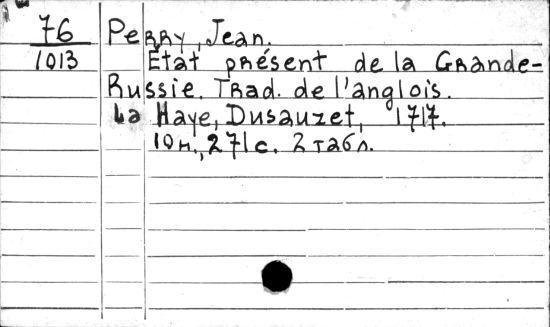 76 Perry, Jean.
1013 État présent de la Grande-
Russie. Trad. de l'anglois.
La Haye, Dusauzet, 1717.
10н., 271с. 2 табл.